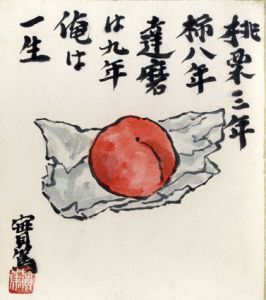 桃栗三年
柿八年
達磨
は九年
俺は
一生
實篤